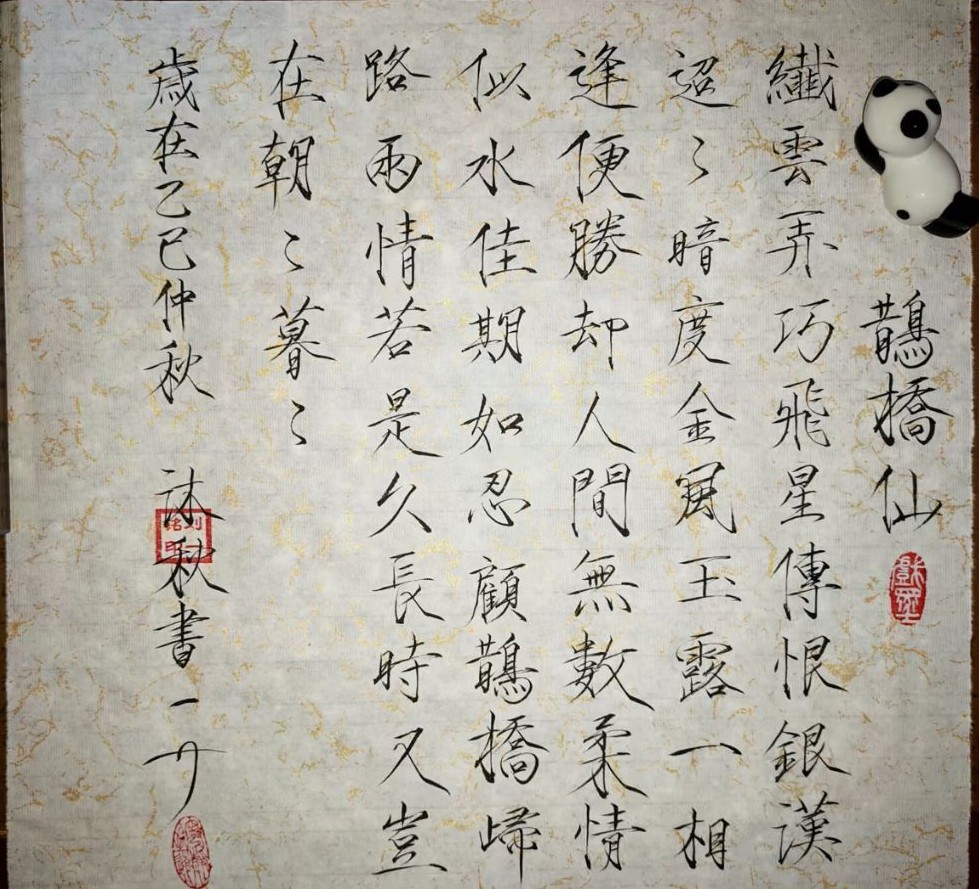 鵲橋仙
纖雲弄巧飛星傳恨銀漢
迢〻暗度金風玉露一相
逢便勝却人間無數柔情
似水佳期如忍顧鵲橋歸
路兩情若是久長時又豈
在朝〻暮〻
歲在乙巳仲秋 沐秋書一